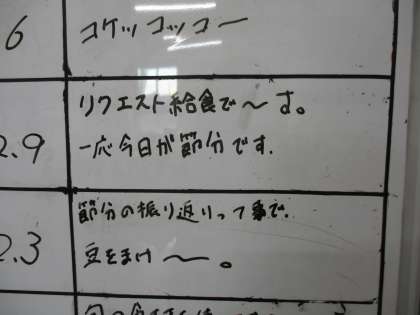 6
コケッコッコー
リクエスト給食で〜す。
2.9
一応今日が節分です.
節分の振り返りって事で.
2.3
豆をまけ〜。